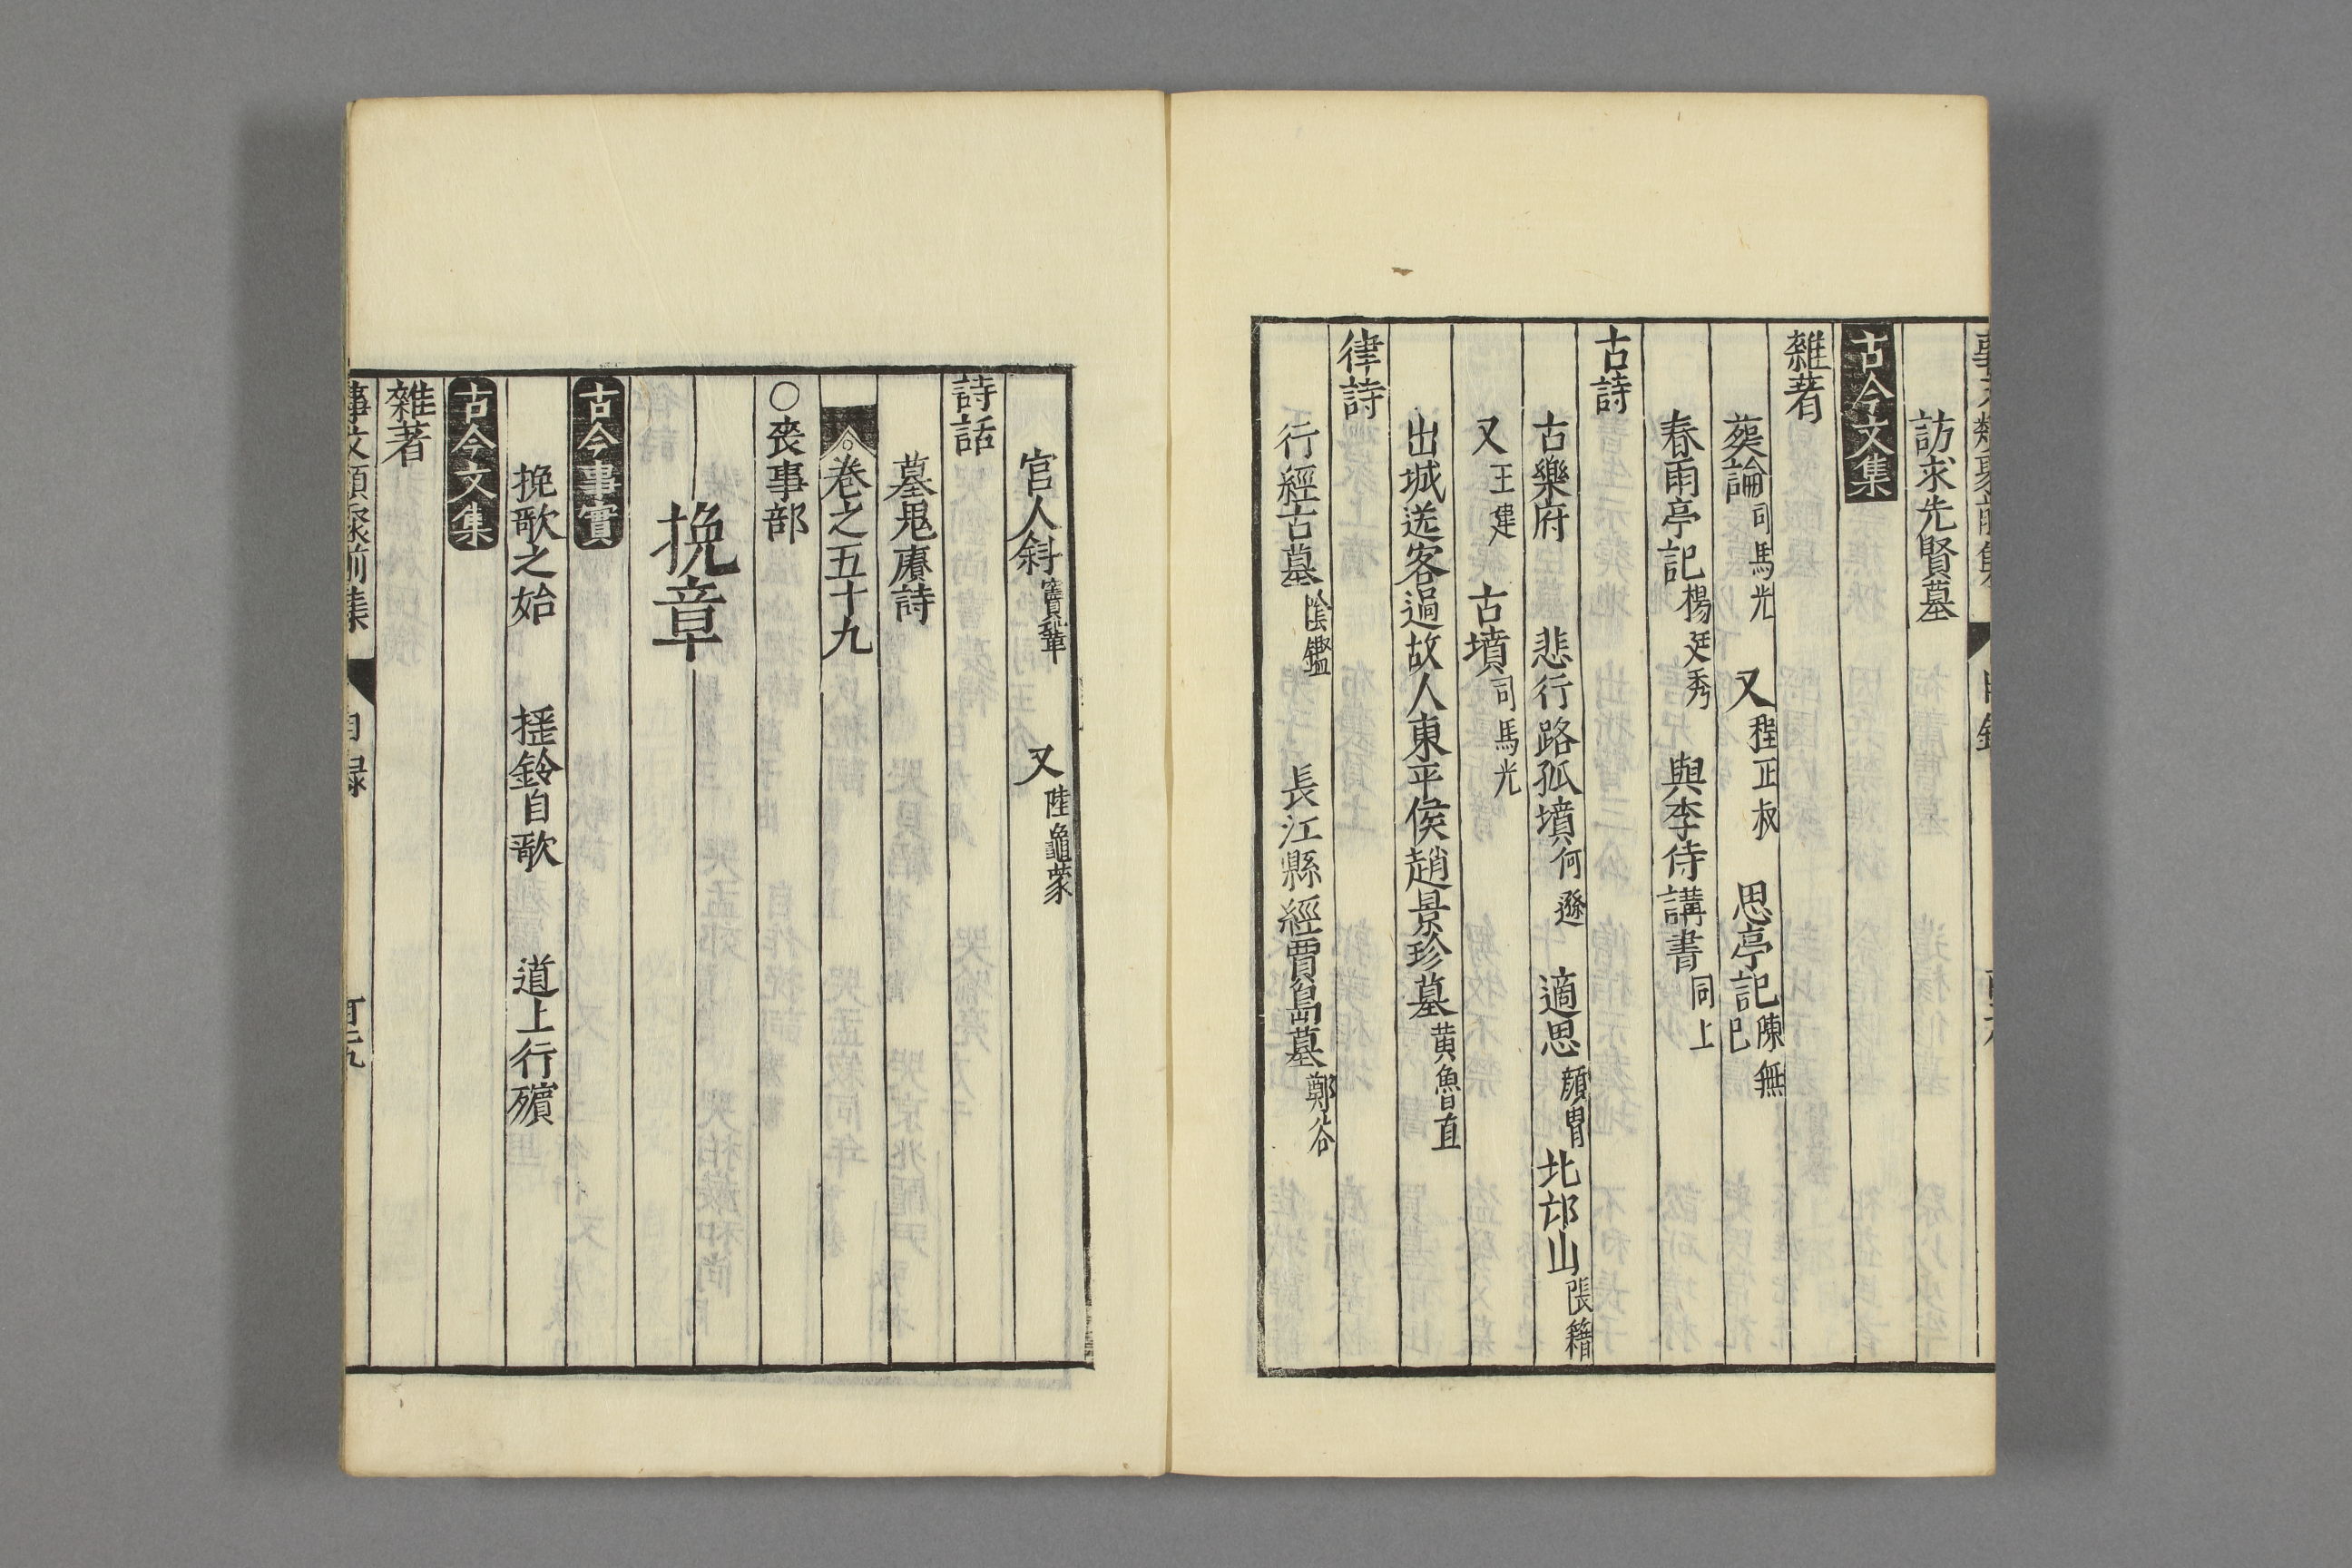 訪求先賢墓
古今文集
雜著
葬論 司馬光 又 程正叔 思亭記 陳無已
春雨亭記 楊廷秀 與李侍講書 同上
古詩
古樂府 悲行路孤墳 何遜 適思 顔胄 北邙山 張籍
又 王建 古墳 司馬光
出城送客過故人東平侯趙景珍墓 黄魯直
律詩
行經古墓 陰鏗 長江縣經賈島墓 鄭谷
官人斜 竇鞏 又 陸龜蒙
詩話
墓鬼賡詩
卷之五十九
○喪事部
挽章
古今事實
挽歌之始 揺鈴自歌 道上行殯
古今文集
雜著
事文類聚前集 目録